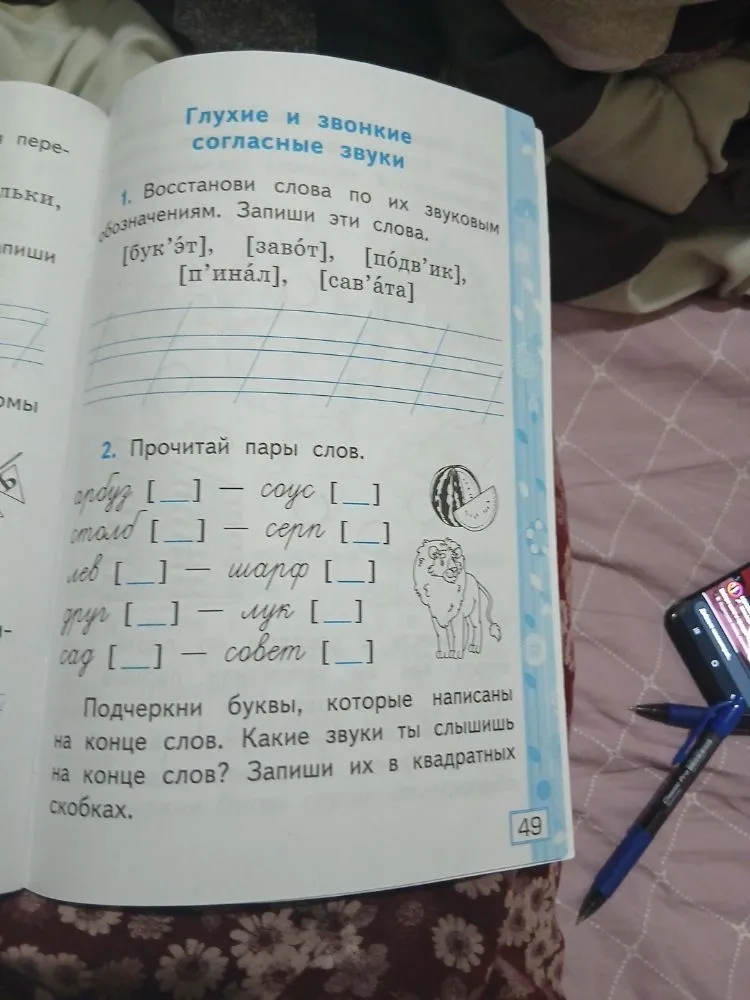 Глухие и звонкие
согласные звуки
1. Восстанови слова по их звуковым
обозначениям. Запиши эти слова.
[бук’э́т], [заво́т], [по́дв’ик],
[п’ина́л], [сав’а́та]
2. Прочитай пары слов.
арбуз [__] — соус [__]
столб [__] — серп [__]
лев [__] — шарф [__]
друг [__] — лук [__]
сад [__] — совет [__]
Подчеркни буквы, которые написаны
на конце слов. Какие звуки ты слышишь
на конце слов? Запиши их в квадратных
скобках.
49